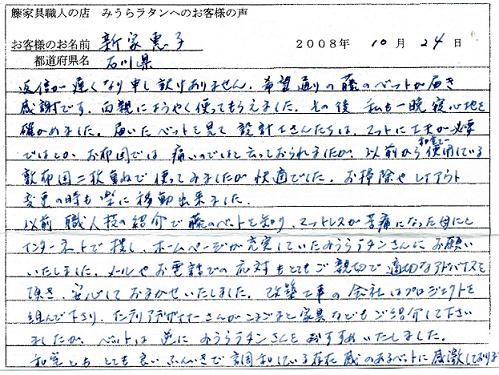 籐家具職人の店 みうらラタンへのお客様の声
お客様のお名前 新家恵子 2008年 10月 24日
都道府県名 石川県
返信が遅くなり申し訳けありません。希望通りの藤のベットが届き
感謝です。両親にようやく使ってもらえました。その後 私も一晩 寝心地を
確かめました。届いたベットを見て 設計士さんたちは、マットに工夫が必要
ではとか、お布団では 痛いのではと云っておられましたが、以前から和室で使用している
敷布団二枚重ねで使ってみましたが快適でした。お掃除やレイアウト
変更の時も楽に移動出来ました。
以前 職人技の紹介で藤のベットを知り、マットレスが苦痛になった母にと
インターネットで探し、ホームページが充実していたみうらラタンさんにお願い
いたしました。メールやお電話での応対もとてもご親切で適切なアドバイスを
頂き、安心しておまかせいたしました。改築工事の会社はプロジェクトを
組んで下さり、インテリアデザイナーさんがこまごまと家具などもご紹介して下さい
ましたが、ベットは 逆に みうらラタンさんをおすすめいたしました。
和室とも とても良いふんいきで調和している存在感のあるベットに感激しております